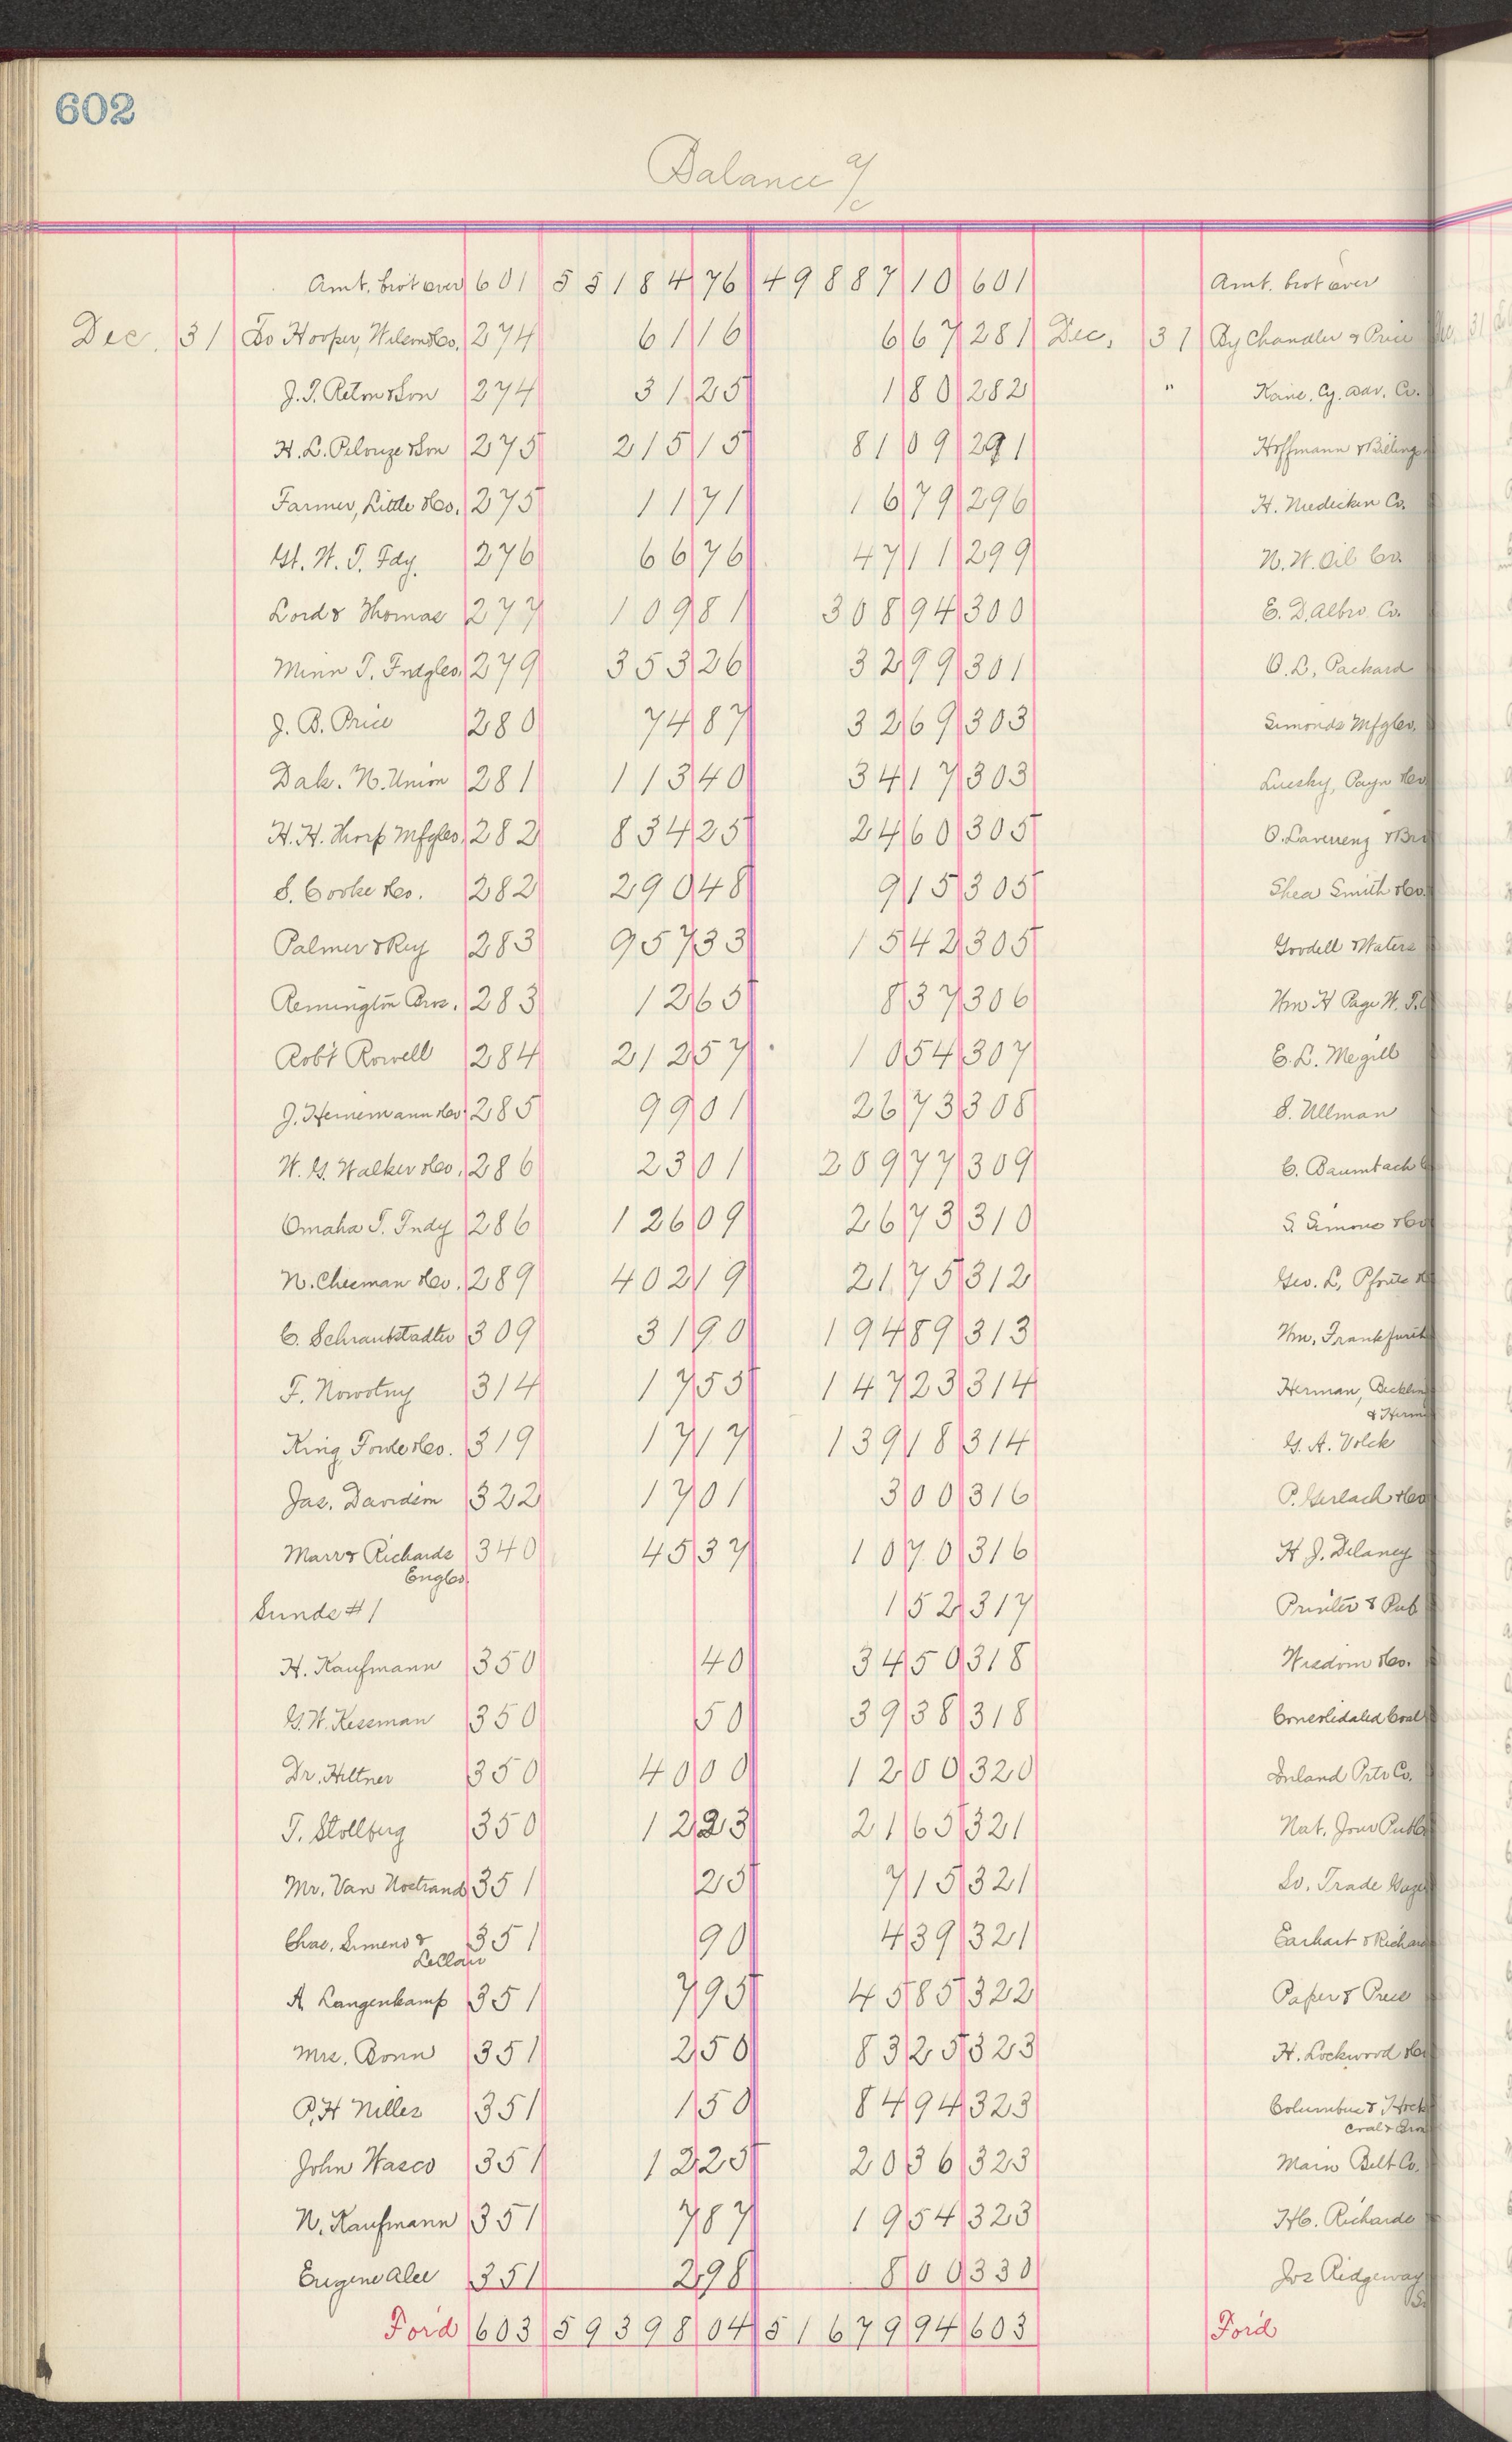 602
Balance a/c
Amt. brot over 601 55184 76 49887 10 601 Amt. brot over
Dec. 31 To Hooper, Wilson &Co. 274 61 16 6 67 281 Dec. 31 By Chandler & Price
J. T. Reton &Son 274 31 25 1 80 282 " Kane. Cy. Adv. Co.
H. L. Pelouze &Son 275 215 15 81 09 291 Hoffmann & Billings
Farmer, Little &Co. 275 11 71 16 79 296 H. Niedecken Co.
Gt. W. T. Fdy. 276 66 76 47 11 299 N. W. Oil Co.
Lord & Thomas 277 109 81 308 94 300 E. D. Albro Co.
Minn T. Fndry Co. 279 353 26 32 99 301 O. L. Packard
J. B. Price 280 74 87 32 69 303 Simonds Mfg Co.
Dak. N. Union 281 113 40 34 17 303 Payn &Co
H. H. Thorp Mfg Co. 282 834 25 24 60 305 O. Laverrenz & Bro
S. Cooke &Co. 282 290 48 9 15 305 Shea Smith &Co.
Palmer & Rey 283 957 33 15 42 305 Goodell & Waters
Remington Bros. 283 12 65 8 37 306 Wm H Page W. T. C
Rob't Rowell 284 212 57 10 54 307 E. L. Megill
J. Heinemann &Co. 285 99 01 26 73 308 S. Ullman
W. G. Walker &Co. 286 23 01 209 77 309 C. Baumbach
Omaha T. Fndy 286 126 09 26 73 310 S. Simons &Co
N. Cheeman &Co. 289 402 19 21 75 312 Geo. L. Pfouts
C. Schraubstadter 309 31 90 194 89 313 Wm. Frankfurth
F. Nowotny 314 17 55 147 23 314 Herman, Becklin
& Herm
King, Fowle &Co. 319 17 17 139 18 314 G. A. Volck
Jas. Davidson 322 17 01 3 00 316 P. Gerlach &Co
Marr & Richards 340 45 37 10 70 316 H J. Delaney
Eng Co.
Sunds #1 1 52 317 Printer & Pub
H. Kaufmann 350 40 34 50 318 Wisdom &Co.
G. W. Kessman 350 50 39 38 318 Consolidated Coal
Dr. Hiltner 350 40 00 12 00 320 Inland Prtr Co.
T. Stollberg 350 12 23 21 65 321 Nat. Jour Publ
Mr. Van Nostrand 351 25 7 15 321 Lo. Trade
Chas. Simens & 351 90 4 39 321 Earhart & Richard
LeClair
A Langenkamp 351 7 95 45 85 322 Paper & Press
Mrs. Bonn 351 2 50 83 25 323 H. Lockwood &Co
P. H Nilles 351 1 50 84 94 323 Columbus & Hock
Coal & Iron
John Wasco 351 12 25 20 36 323 Main Belt Co.
N. Kaufmann 351 7 87 19 54 323 H C. Richards
Eugene Alee 351 2 98 8 00 330 Jos Ridgeway
Ford 603 59398 04 51679 94 603 Ford